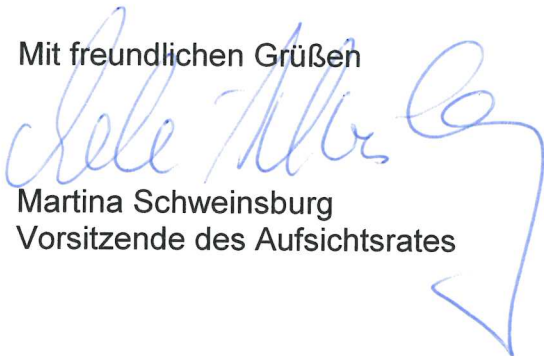 Mit freundlichen Grüßen
Martina Schweinsburg
Vorsitzende des Aufsichtsrates